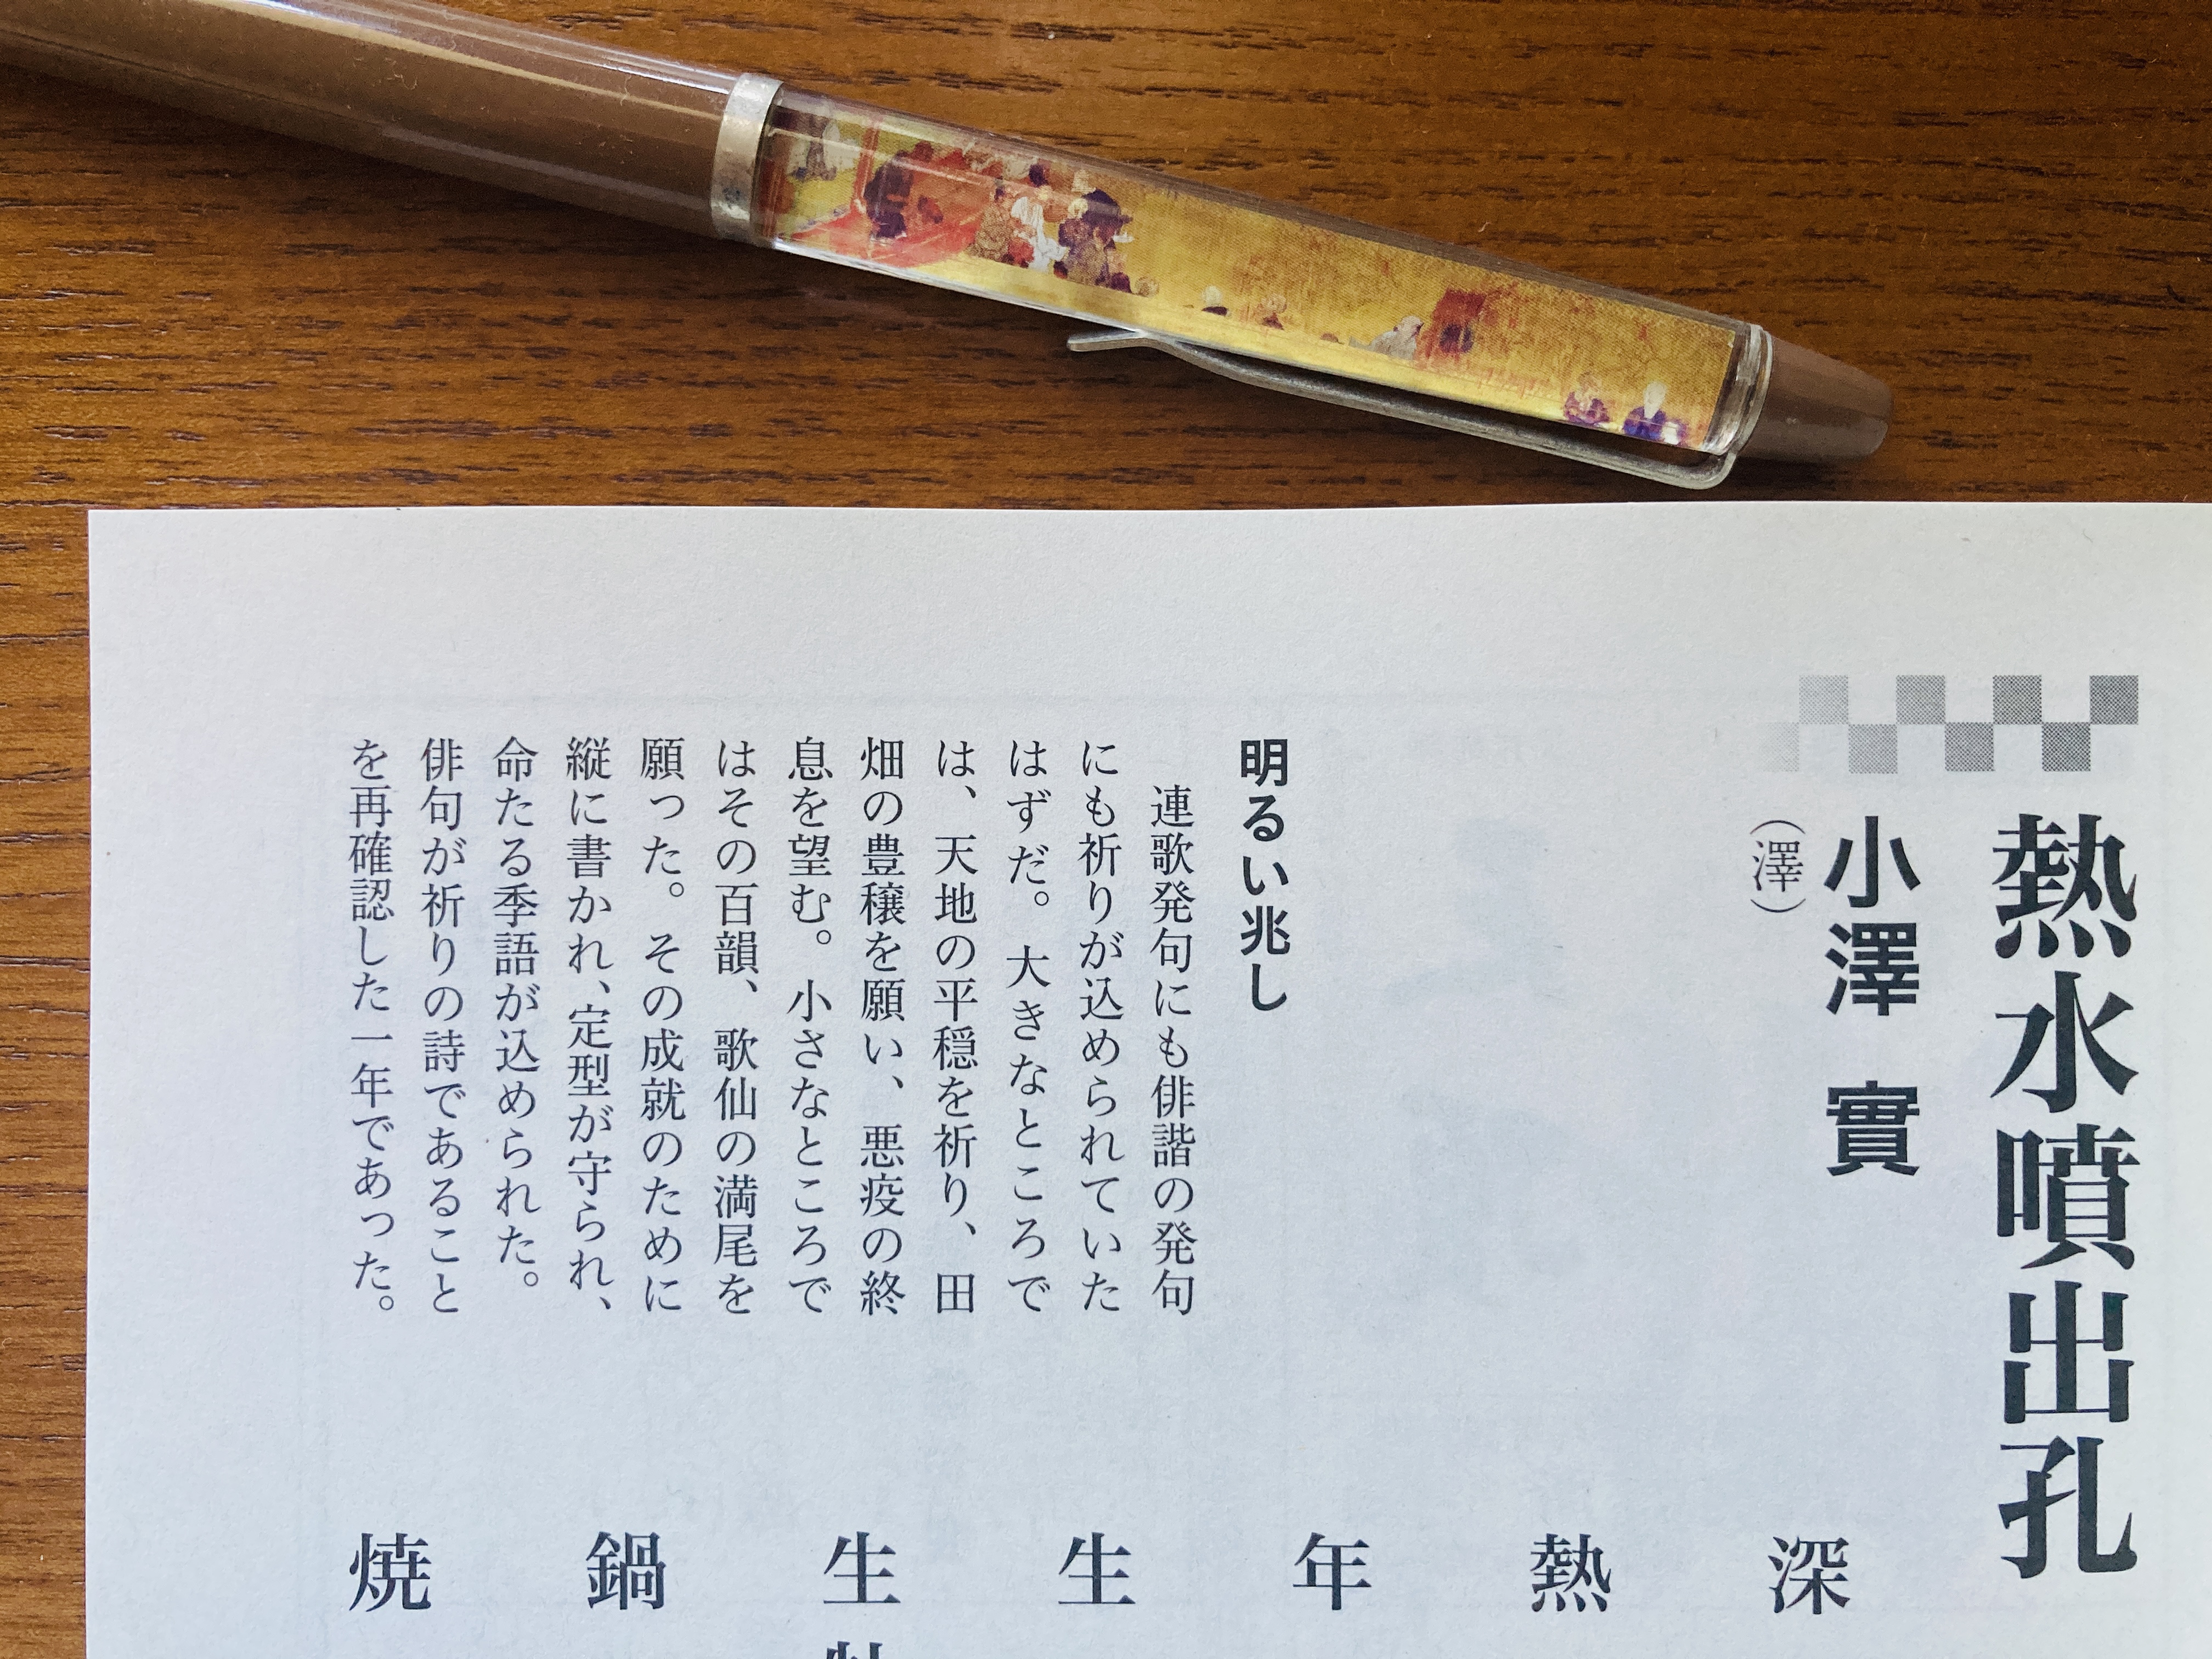 熱水噴出孔
小澤 實
（澤）
明るい兆し
連歌発句にも俳諧の発句
にも祈りが込められていた
はずだ。大きなところで
は、天地の平穏を祈り、田
畑の豊穣を願い、悪疫の終
息を望む。小さなところで
はその百韻、歌仙の満尾を
願った。その成就のために
縦に書かれ、定型が守られ、
命たる季語が込められた。
俳句が祈りの詩であること
を再確認した一年であった。
深
熱
年
生
生
鍋
焼